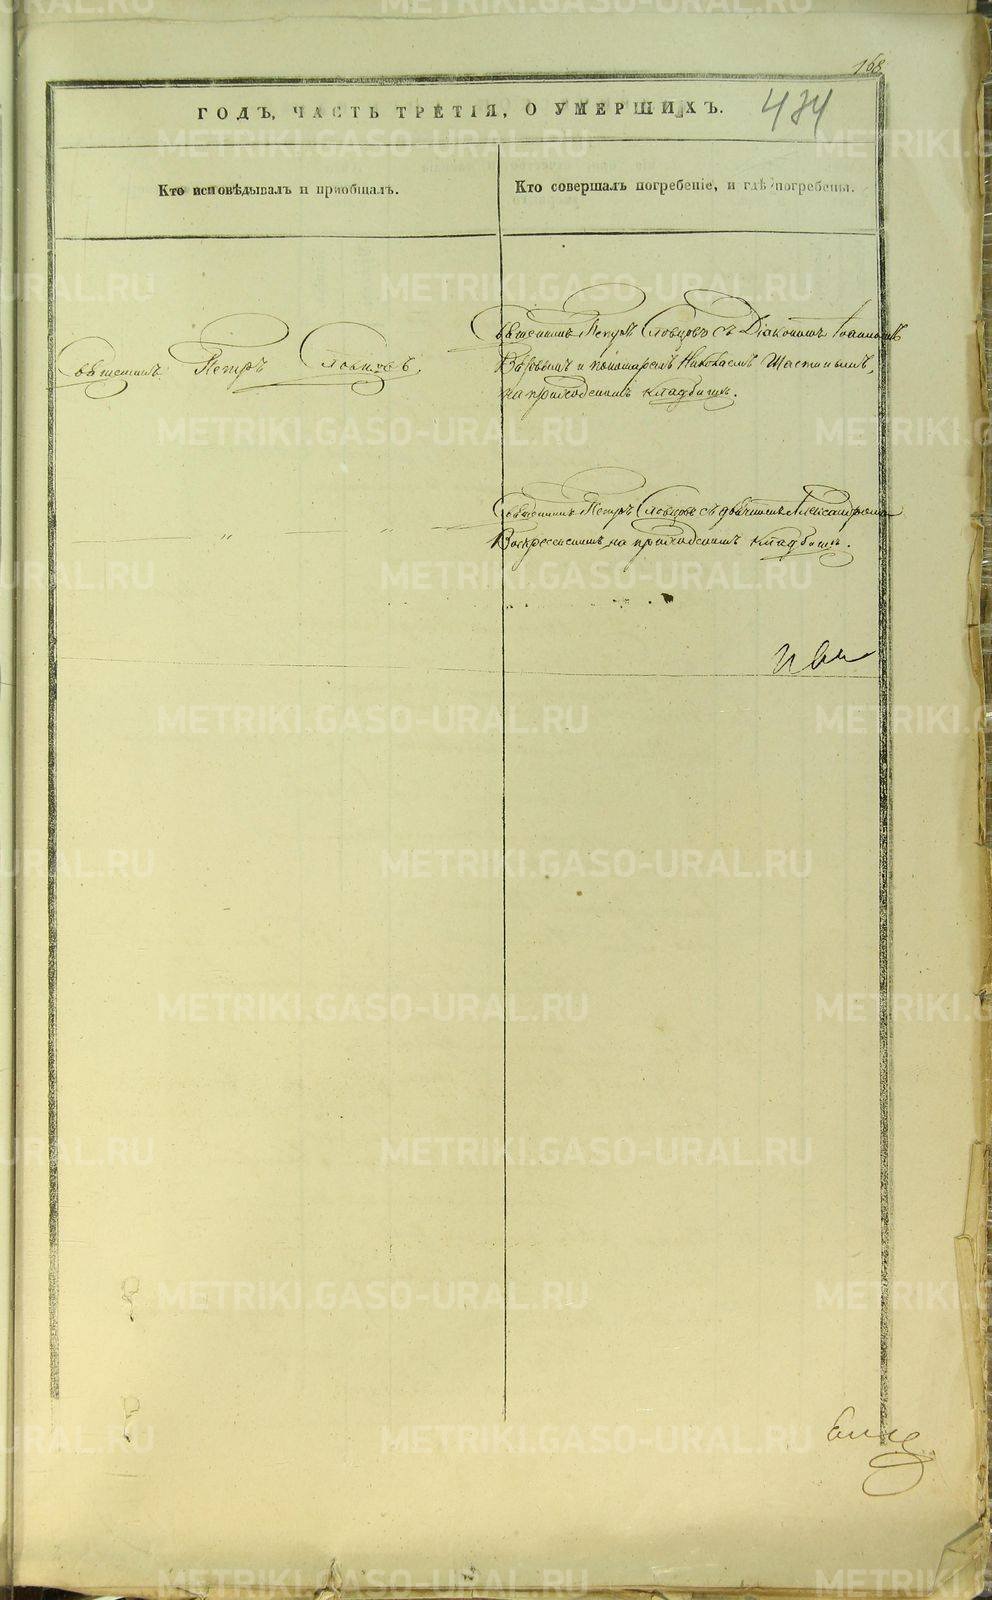 168
434
ГОДЪ, ЧАСТЬ ТРЕТІЯ, О УМЕРШИХЪ.
Кто исповѣдывалъ и пріобщалъ.
Кто совершалъ погребеніе, и гдѣ погребены.
Священникъ Петръ Словцовъ.
Священникъ Петръ Словцовъ съ Діакономъ Іоанномъ
и пономаремъ Николаемъ
на приходскомъ кладбищѣ.
Священникъ Петръ Словцовъ съ Александромъ
Воскресенскимъ на приходскомъ кладбищѣ.
METRIKI.GASO-URAL.RU